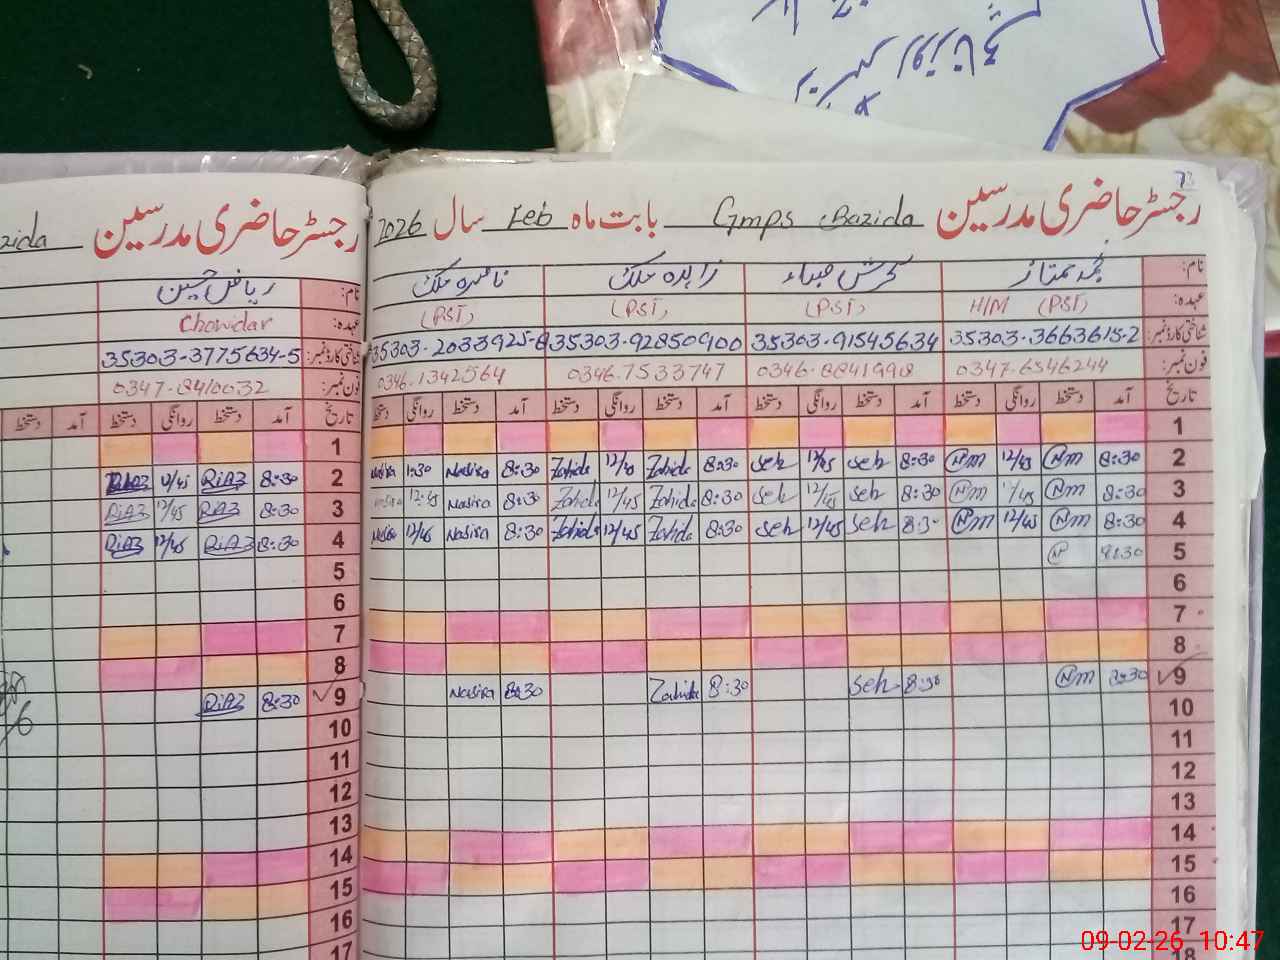 روزنامچہ
73
رجسٹر حاضری مدرسین Gmps Bazida بابت ماہ Feb سال 2026
رجسٹر حاضری مدرسین zida
نام: محمد ممتاز زاہدہ ملک ناصرہ ملک
نام: ریاض حسین
عہدہ: H/M (PST) (PST) (PST) (PST)
عہدہ: Chowidar
شناختی کارڈ نمبر: 35303-3663615-2 35303-91545634 35303-92850900 35303-2033925-8
شناختی کارڈ نمبر: 35303-3775634-5
فون نمبر: 0347-6546244 0346-7533747 0346-1342564
فون نمبر:
تاریخ آمد دستخط روانگی دستخط آمد دستخط روانگی دستخط آمد دستخط روانگی دستخط آمد دستخط روانگی دستخط
تاریخ آمد دستخط روانگی دستخط آمد دستخط
1
2 8:30 Nm 12/45 Nm 8:30 Seh 12/45 Seh 8:30 Zahida 12/45 Zahida 8:30 Nasira 1:30 Nasira
3 8:30 Nm 12/45 Nm 8:30 Seh 12/45 Seh 8:30 Zahida 12/45 Zahida 8:30 Nasira 12:45
4 8:30 Nm 12/45 Nm 8:30 Seh 12/45 Seh 8:30 Zahida 12/45 Zahida 8:30 Nasira 12/45 Nasira
5 8:30 N
6
7
8
9 8:30 Nm 8:30 Seh 8:30 Zahida 8:30 Nasira
10
11
12
13
14
15
16
17
18
1
2 8:30 RiAZ 12/45 RiAZ
3 8:30 RiAZ 12/45 RiAZ
4 8:30 RiAZ 12/45 RiAZ
5
6
7
8
9 8:30 RiAZ
10
11
12
13
14
15
16
17
09-02-26 10:47